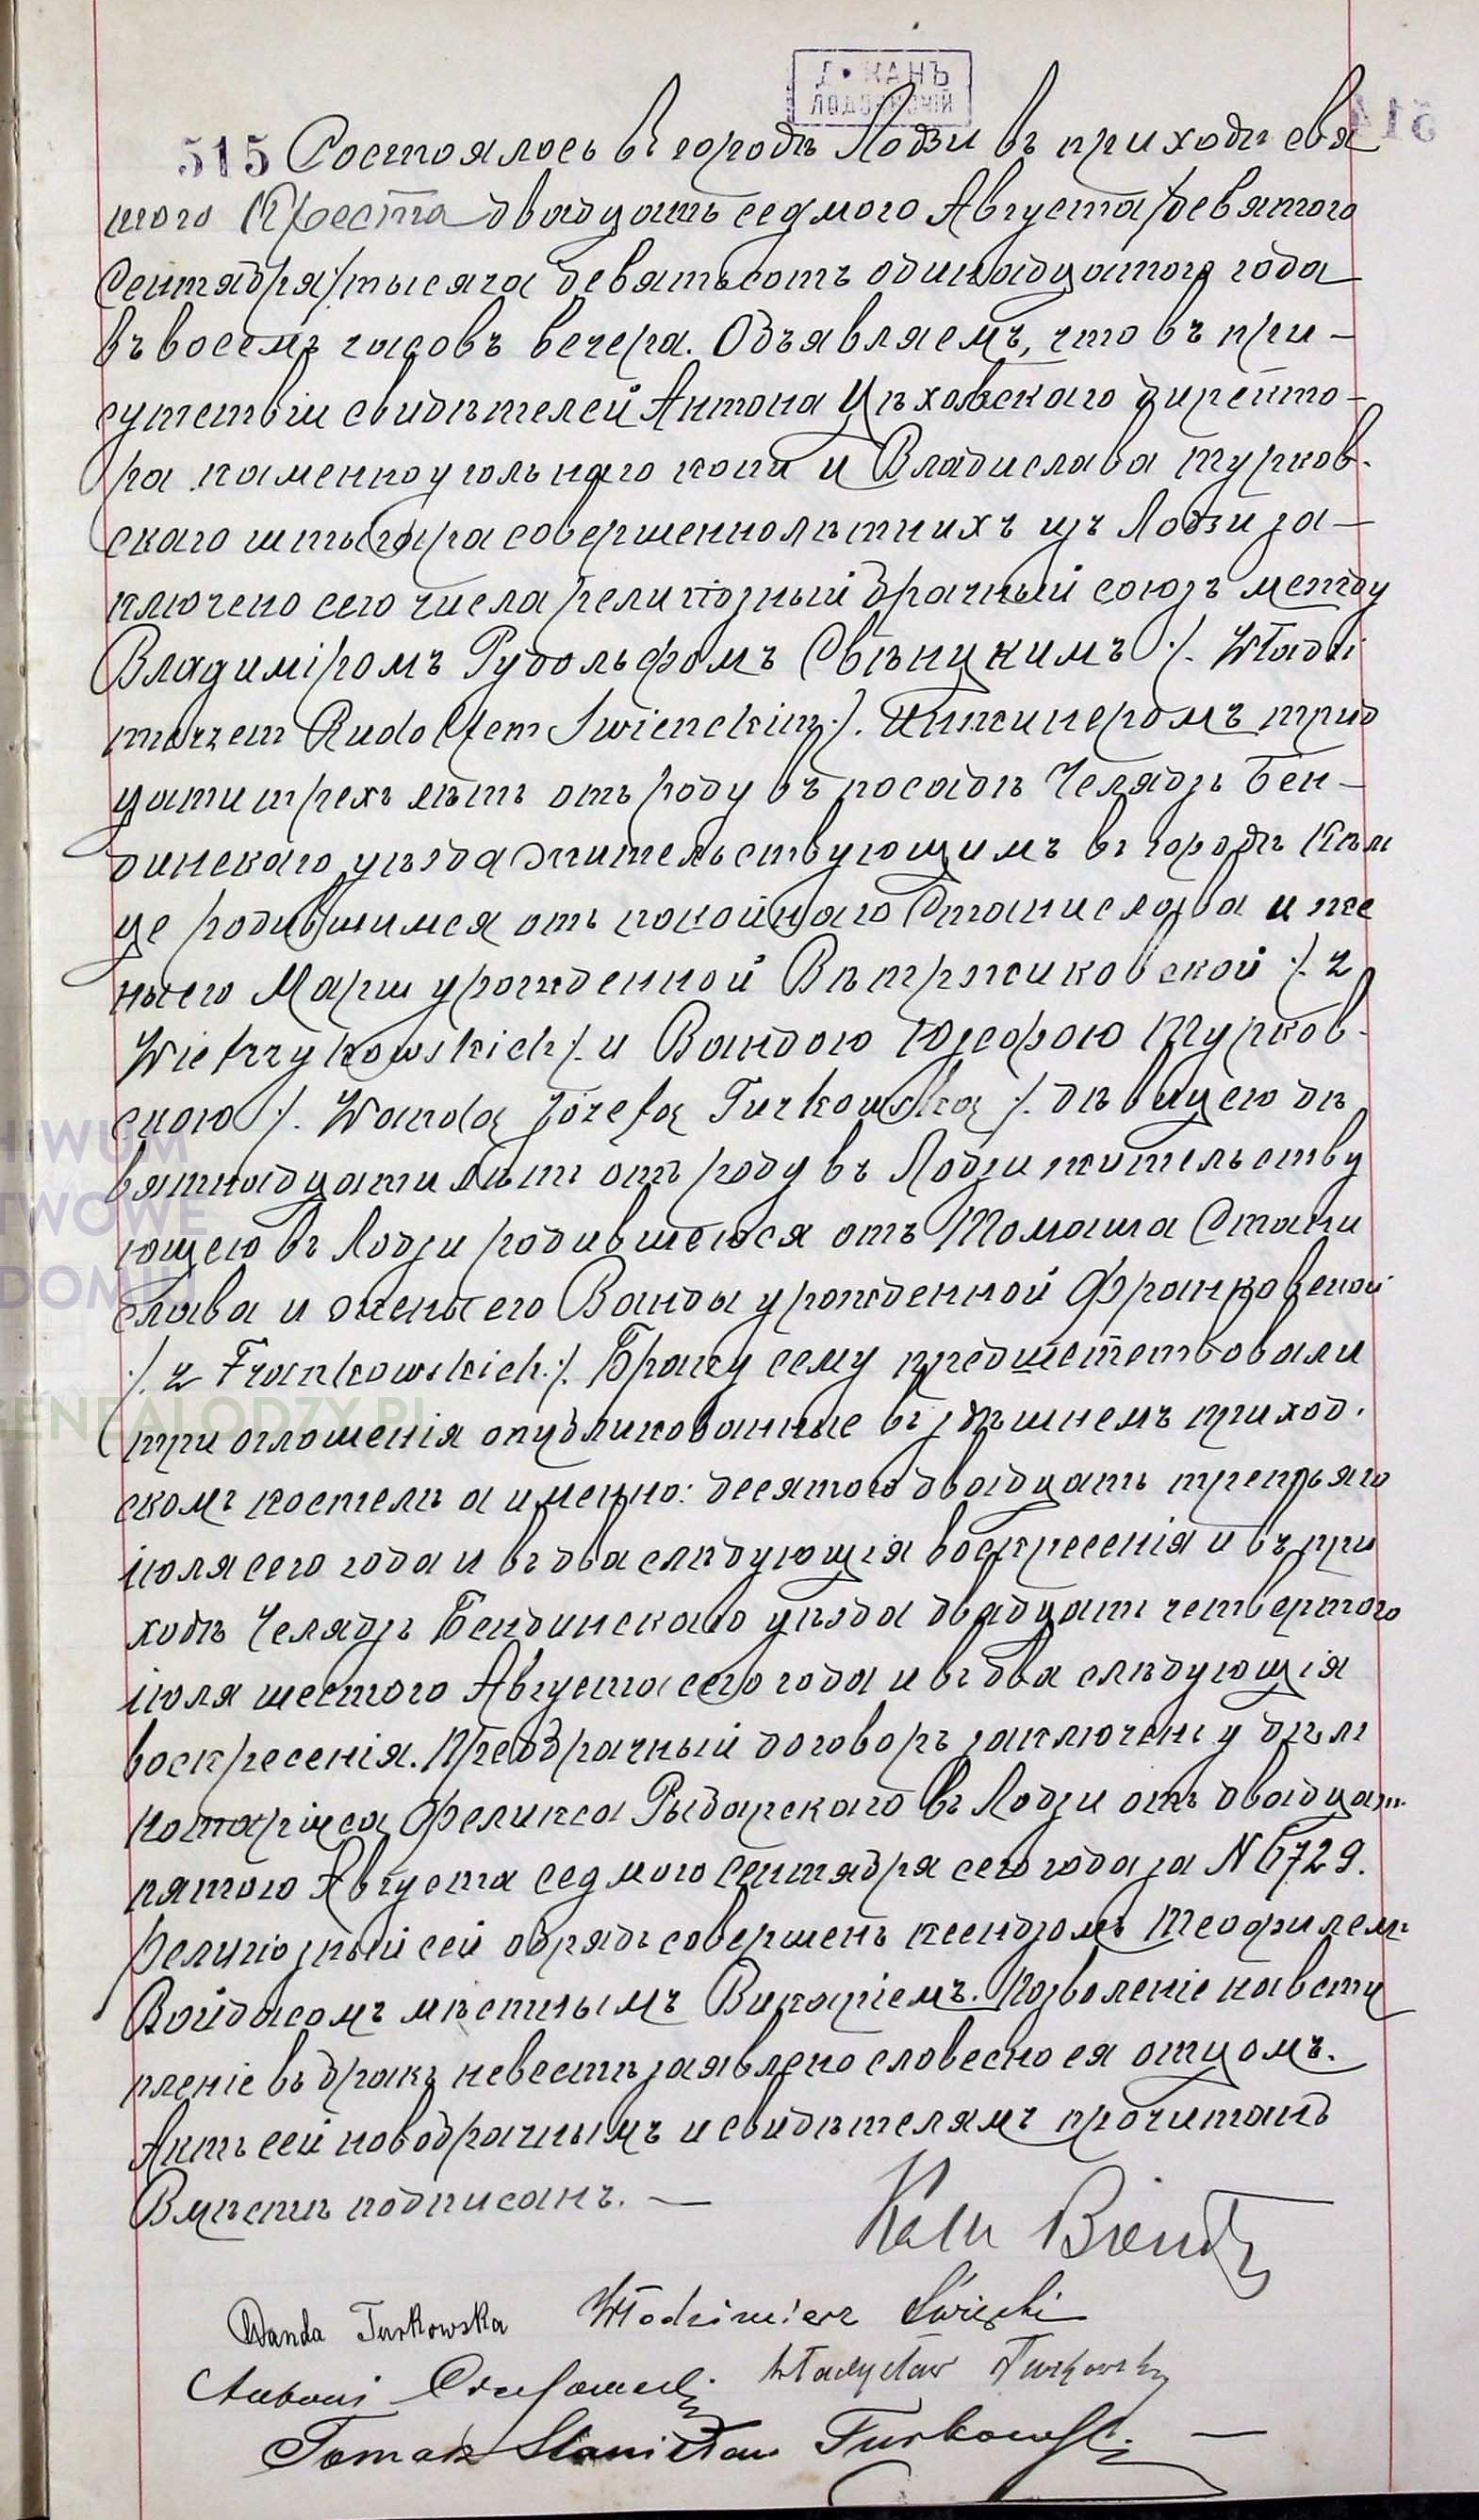 Д КАНЪ
ЛОДЗИНСКІЙ
514
515 Состоялось въ городѣ Лодзи въ приходѣ свя
того Креста двадцать седмого Августа /девятого
Сентября/ тысяча девятьсотъ одинадцатого года
въ восемь часовъ вечера. Объявляемъ, что въ при-
сутствіи свидѣтелей Антона Цѣховскаго директо-
ра каменноугольнаго копи и Владислава Турков-
скаго штыгара совершеннолѣтнихъ изъ Лодзи за-
ключено сего числа религіозный брачный союзъ между
Владиміромъ Рудольфомъ Свѣнцкимъ /. Włodzi
mierzem Rudolfem Swienckim ./. Инжинеромъ трид
цати трехъ лѣтъ отъ роду въ посадѣ Челядзь Бен-
динскаго уѣзда жительствующимъ въ городѣ Кѣль
це родившимся отъ покойнаго Станислава и же
ны его Маріи урожденной Вѣтржиковской /. z
Wietrzykowskich /. и Вандою Юзефою Турков-
скою /. Wandą Józefą Turkowską /. дѣвицею де
вятнадцати лѣтъ отъ роду въ Лодзи жительству
ющею въ Лодзи родившеюся отъ Томаша Стани
слава и жены его Ванды урожденной Франковской
./. z Frankowskich ./. Браку сему предшетствовали
три оглошенія опубликованные въ здѣшнемъ приход.
скомъ костелѣ а именно: десятого двадцать третьяго
іюля сего года и въ два слѣдующія воскресенія и въ при
ходѣ Челядзь Бендинскаго уѣзда двадцать четвертого
іюля шестого Августа сего года и въ два слѣдующія
воскресенія. Предбрачный договоръ заключенъ у дѣлъ
нотаріуса Феликса Рыбарскаго въ Лодзи отъ двадцать
пятого Августа седмого Сентября сего года за N 6729.
Религіозный сей обрядъ совершенъ ксендзомъ Теофилемъ
Войдасомъ мѣстнымъ Викаріемъ. Позволеніе на всту
пленіе въ бракъ невестѣ заявлено словесно ея отцомъ.
Актъ сей новобрачнымъ и свидѣтелямъ прочитанъ
Вмѣстѣ подписанъ. —
Wanda Turkowska Włodzimierz Święcki
Antoni Władysław Turkowski
Tomasz Stanisław Turkowski —
HIWUM
TWOWE
DOMIU
GENEALODZY.PL